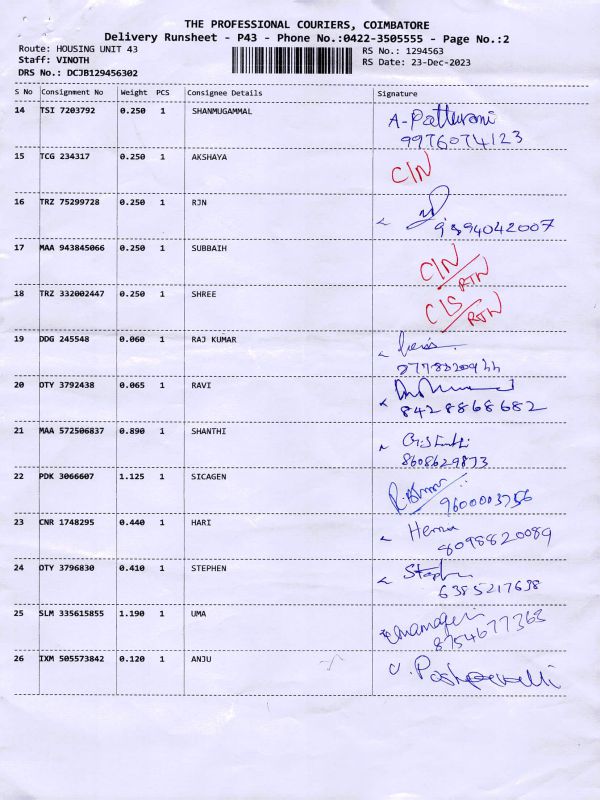 THE PROFESSIONAL COURIERS, COIMBATORE
Delivery Runsheet - P43 - Phone No.:0422-3505555 - Page No.:2
Route: HOUSING UNIT 43 RS No.: 1294563
Staff: VINOTH RS Date: 23-Dec-2023
DRS No.: DCJB129456302
S No Consignment No Weight PCS Consignee Details Signature
14 TSI 7203792 0.250 1 SHANMUGAMMAL A-Patturani
9976074123
15 TCG 234317 0.250 1 AKSHAYA C/N
16 TRZ 75299728 0.250 1 RJN
9894042007
17 MAA 943845066 0.250 1 SUBBAIH C/N
RTN
18 TRZ 332002447 0.250 1 SHREE C/S
RTN
19 DDG 245548 0.060 1 RAJ KUMAR
20 OTY 3792438 0.065 1 RAVI
8428868682
21 MAA 572506837 0.890 1 SHANTHI
8608629873
22 PDK 3066607 1.125 1 SICAGEN
9600003756
23 CNR 1748295 0.440 1 HARI Hema
8098820089
24 OTY 3796830 0.410 1 STEPHEN Stephen
6385217638
25 SLM 335615855 1.190 1 UMA
8754677363
26 IXM 505573842 0.120 1 ANJU